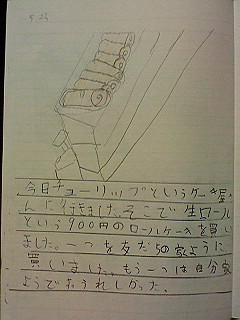 5.23
今日チューリップというケーキ屋さ
んに行きました。そこで生ロール
という900円のロールケーキを買い
ました。一つを友だちの家ように
買いました。もう一つは自分家
ようでおうれしかった。